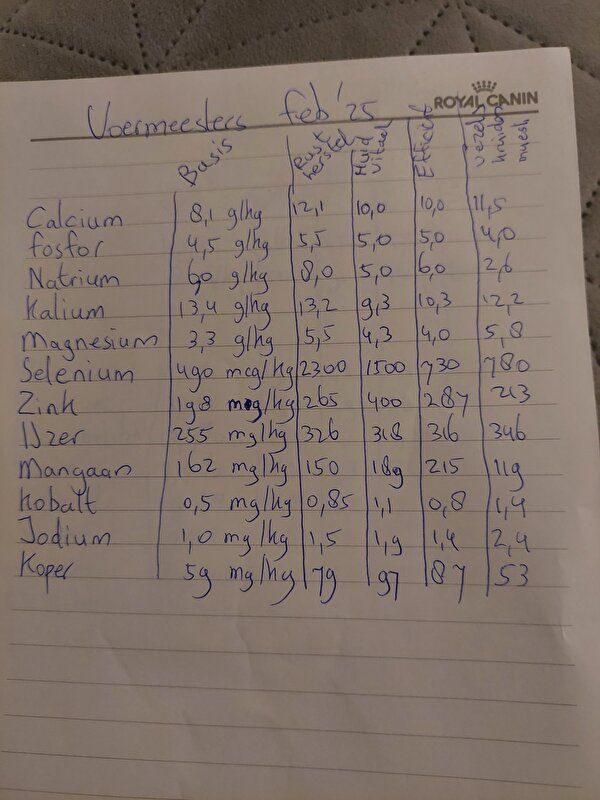 ROYAL CANIN
Voermeesters feb '25
Basis Rust herstel Huid vitaal Efficient vezels kruiden myesh
Calcium 8,1 g/kg 12,1 10,0 10,0 11,5
fosfor 4,5 g/kg 5,5 5,0 5,0 4,0
Natrium 6,0 g/kg 8,0 5,0 6,0 2,6
Kalium 13,4 g/kg 13,2 9,3 10,3 12,2
Magnesium 3,3 g/kg 5,5 4,3 4,0 5,8
Selenium 490 mcg/kg 2300 1500 730 780
Zink 198 mg/kg 265 400 287 213
IJzer 255 mg/kg 326 318 316 346
Mangaan 162 mg/kg 150 189 215 119
Kobalt 0,5 mg/kg 0,85 1,1 0,8 1,4
Jodium 1,0 mg/kg 1,5 1,9 1,4 2,4
Koper 59 mg/kg 79 97 87 53